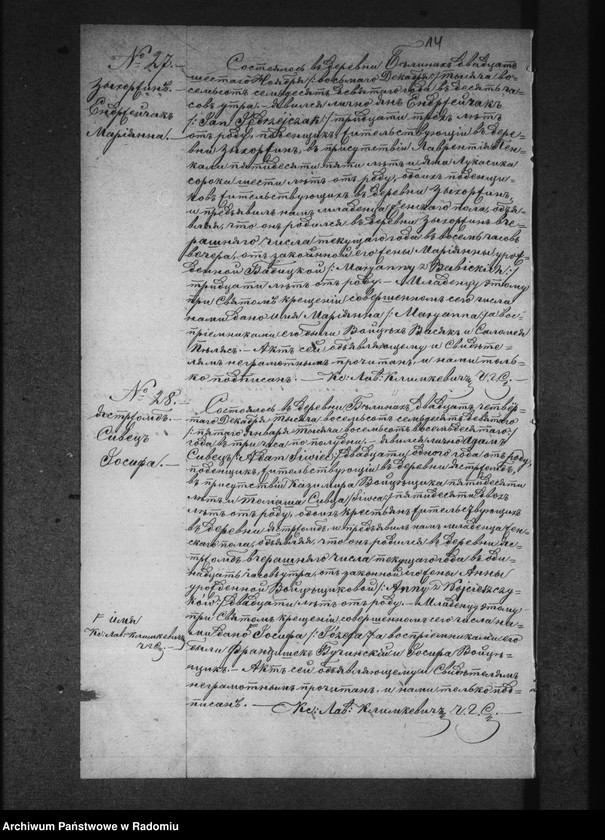 14
№ 27.
Зыхоржинъ.
Ендржейчакъ
Маріянна.
Состоялось въ деревни Бѣлинахъ двадцать
шестаго Ноября /: восьмаго Декабря / тысяча во=
семьсотъ семьдесятъ девятаго года въ десять ча=
совъ утра. — Явился лично Янъ Ендржейчакъ
/: Jan Jędrzejczak / тридцати трехъ лѣтъ
отъ роду, поденщикъ жительствующій въ дере=
вни Зыхоржинъ, въ присутствіи Лаврентія
пятидесяти пяти лѣтъ и Яна Лукасика
сорока шести лѣтъ отъ роду, обоихъ поденщи=
ковъ жительствующихъ въ деревни Зыхоржинъ,
и предъявилъ намъ младенца женскаго пола, объя=
вляя, что онъ родился въ деревни Зыхоржинъ вче=
рашняго числа текущаго года въ восемь часовъ
вечера, отъ законной его жены Маріянны урож=
денной Бабицкой /: Maryanny z Babickich :/
тридцати лѣтъ отъ роду. — Младенцу этому
при Святомъ крещеніи совершенномъ сего числа
нами дано имя Маріянна /: Maryanna / а вос=
пріемниками его были Войцѣхъ Васякъ и Саломея
— Актъ сей объявляющему и Свидѣте=
лямъ неграмотнымъ прочитанъ, и нами толь=
ко подписанъ. — Кс: Лав: Климкевичъ Ч. Г. С.
№ 28.
Ястржомбъ.
Сивецъ
Іосифа. —
Состоялось въ деревни Бѣлинахъ двадцать четвер=
таго Декабря тысяча восемьсотъ семьдесятъ девятаго
/: пятаго Января тысяча восемьсотъ восемьдесятаго /
года въ три часа по полудни. — Явился лично Адамъ
Сивецъ /: Adam Siwiec / двадцати одного года отъ роду,
поденщикъ жительствующій въ деревни Ястржомбъ,
въ присутствіи Казимира Войцѣщика пятидесяти
лѣтъ и Томаша Сивца /: Siwca / пятидесяти двохъ
лѣтъ отъ роду, обоихъ крестьянъ жительствующихъ
въ деревни Ястржомбъ и предъявилъ намъ младенца жен=
скаго пола, объявляя, что онъ родился въ деревни Яс=
тржомбъ вчерашняго числа текущаго года въ оди=
надцать часовъ утра, отъ законной его жены Анны
урожденной Войцѣщиковой /: Anny z
двадцати лѣтъ отъ роду. — Младенцу этому
при Святомъ крещеніи, совершенномъ сего числа на=
ми дано Іосифа /: Józefa / а воспріемниками его
были Францишекъ Бучинскій и Іосифа Войцѣ=
щикъ. — Актъ сей объявляющему и Свидѣтелямъ
неграмотнымъ прочитанъ, и нами только под=
писанъ. — Кс: Лав: Климкевичъ Ч. Г. С.
имя
Кс: Лав: Климкевичъ
Ч. Г. С.
Archiwum Państwowe w Radomiu